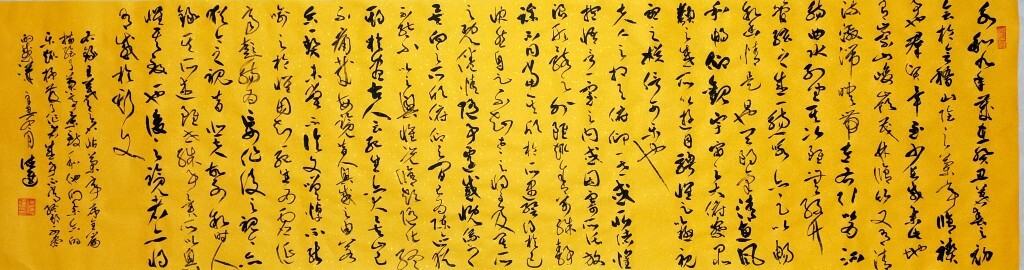 永和九年歲在癸丑暮春之初
會於會稽山陰之蘭亭脩禊
事也群賢畢至少長咸集此地
有崇山峻嶺茂林脩竹又有清
流激湍映帶左右引以為流
觴曲水列坐其次雖無絲竹
管絃之盛一觴一詠亦足以暢
敘幽情是日也天朗氣清惠風
和暢仰觀宇宙之大俯察品
類之盛所以遊目騁懷足以極視
聽之娛信可樂也
夫人之相與俯仰一世或取諸懷
抱悟言一室之內或因寄所託放
浪形骸之外雖趣舍萬殊靜躁
不同當其欣於所遇暫得於己
快然自足不知老之將至及其所
之既倦情隨事遷感慨係之
矣向之所欣俯仰之間已為陳迹猶
不能不以之興懷況脩短隨化終
期於盡古人云死生亦大矣豈
不痛哉每覽昔人興感之由若
合一契未嘗不臨文嗟悼不能
喻之於懷固知死生為虛誕
齊彭殤為妄作後之視今亦
猶今之視昔悲夫故列敘時人
錄其所述雖世殊事異所以興
懷其致一也後之覽者亦將
有感於斯文